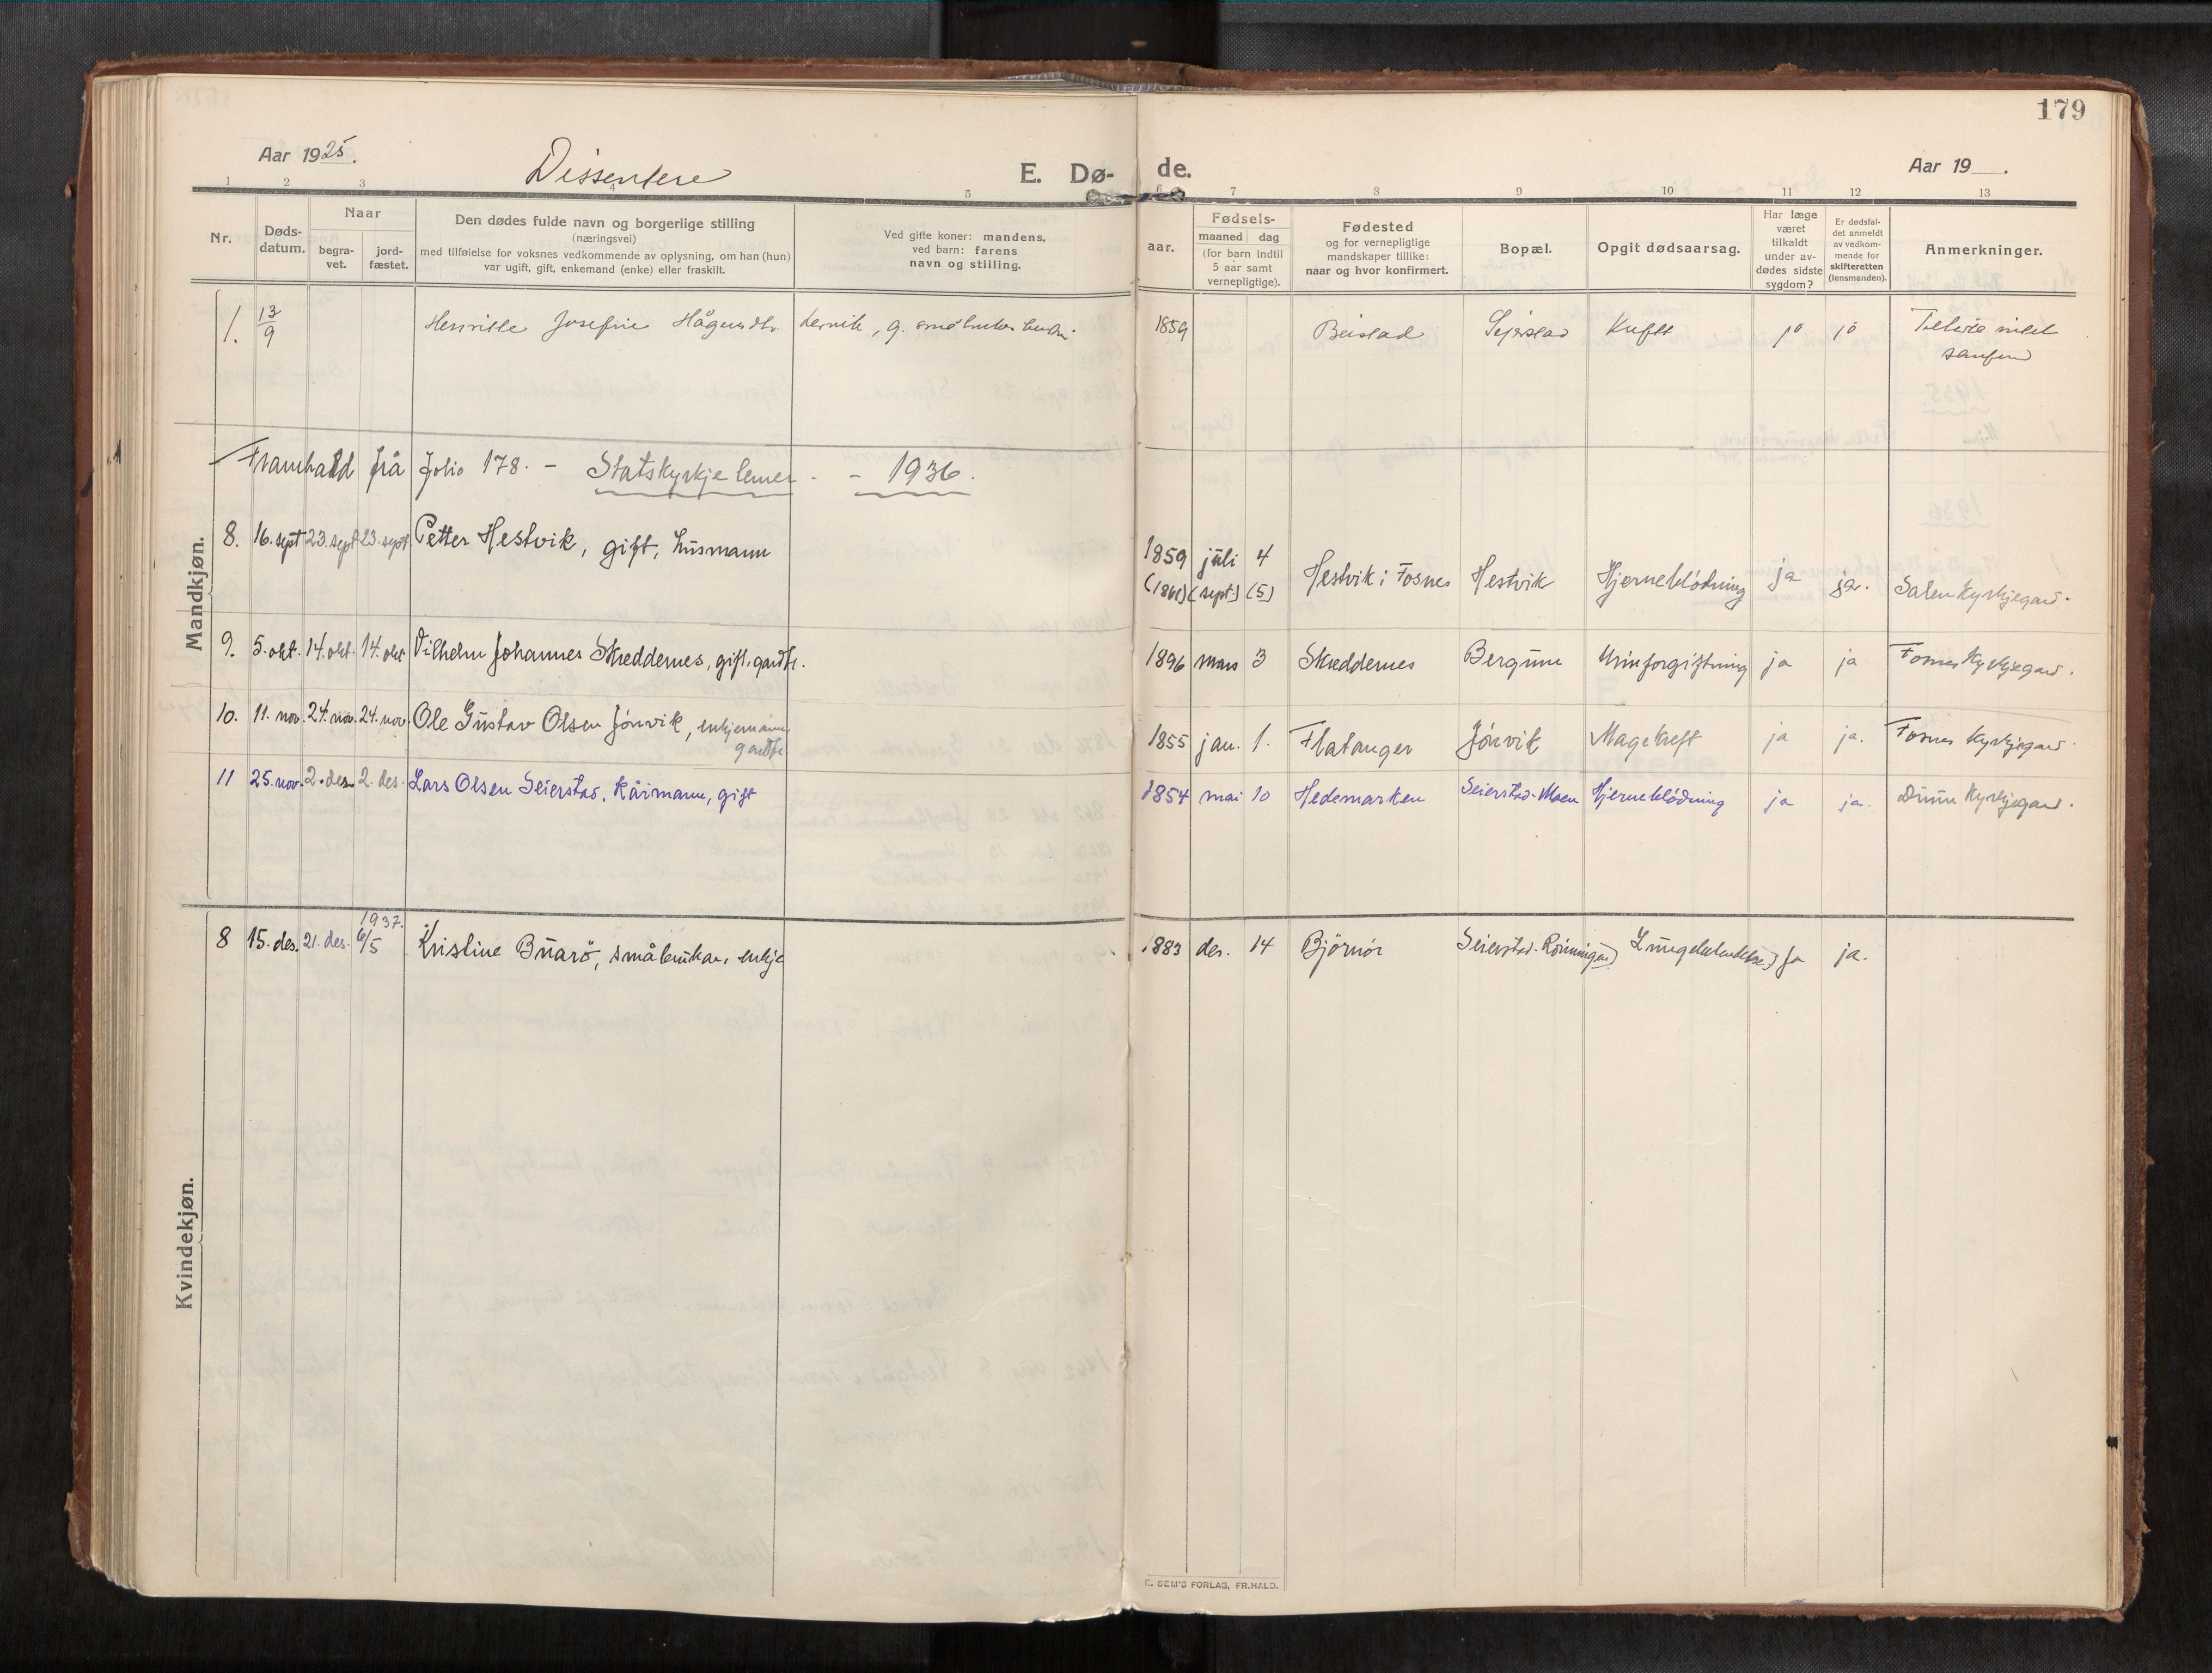 179
Aar 1925.
Dissentere
E. Dø-
de.
Aar 19 .
1 2 3 4 5 6 7 8 9 10 11 12 13
Nr.
Døds-
datum.
Naar
begra-
vet.
jord-
fæstet.
Den dødes fulde navn og borgerlige stilling
(næringsvei)
med tilføielse for voksnes vedkommende av oplysning, om han (hun)
var ugift, gift, enkemand (enke) eller fraskilt.
Ved gifte koner: mandens,
ved barn: farens
navn og stilling.
aar.
Fødsels-
maaned dag
(for barn indtil
5 aar samt
vernepligtige).
Fødested
og for vernepligtige
mandskaper tillike:
naar og hvor konfirmert.
Bopæl.
Opgit dødsaarsag.
Har læge
været
tilkaldt
under av-
dødes sidste
sygdom?
Er dødsfal-
det anmeldt
av vedkom-
mende for
skifteretten
(lensmanden).
Anmerkninger.
1. 13/9 Josefine 1859 Beistad Kreft ja ja
Framhald frå folio 178. - Statskyrkjelemer. - 1936.
Mandkjøn.
8. 16. sept 23. sept 23. sept Petter Hestvik, gift, husmann 1859 juli 4 Hestvik i Fosnes Hestvik Hjerneblødning ja ja. Salen Kyrkjegard.
(1861) (sept.) (5)
9. 5. okt. 14. okt. 14. okt Vilhelm Johannes Skreddernes, gift, gardbr. 1896 mars 3 Skreddernes Bergum Urinforgiftning ja ja Fosnes Kyrkjegard.
10. 11. nov. 24. nov. 24. nov. Ole Gustav Olsen Jónvik, enkjemann 1855 jan. 1. Flatanger Jónvik Magekreft ja ja. Fosnes Kyrkjegard.
gardbr.
11 25. nov. 2. des. 2. des. Lars Olsen Seierstad, kårmann, gift 1854 mai 10 Hedemarken Seierstad-Moen Hjerneblødning ja ja. Duun Kyrkjegard.
Kvindekjøn.
1937.
8 15. des. 21. des. 6/5 Kristine Buarø, småbrukar, enkje 1883 des. 14 Bjørnør Seierstad-Rønningen) Lungebetendelse) ja ja.
E. SEM'S FORLAG, FR.HALD.